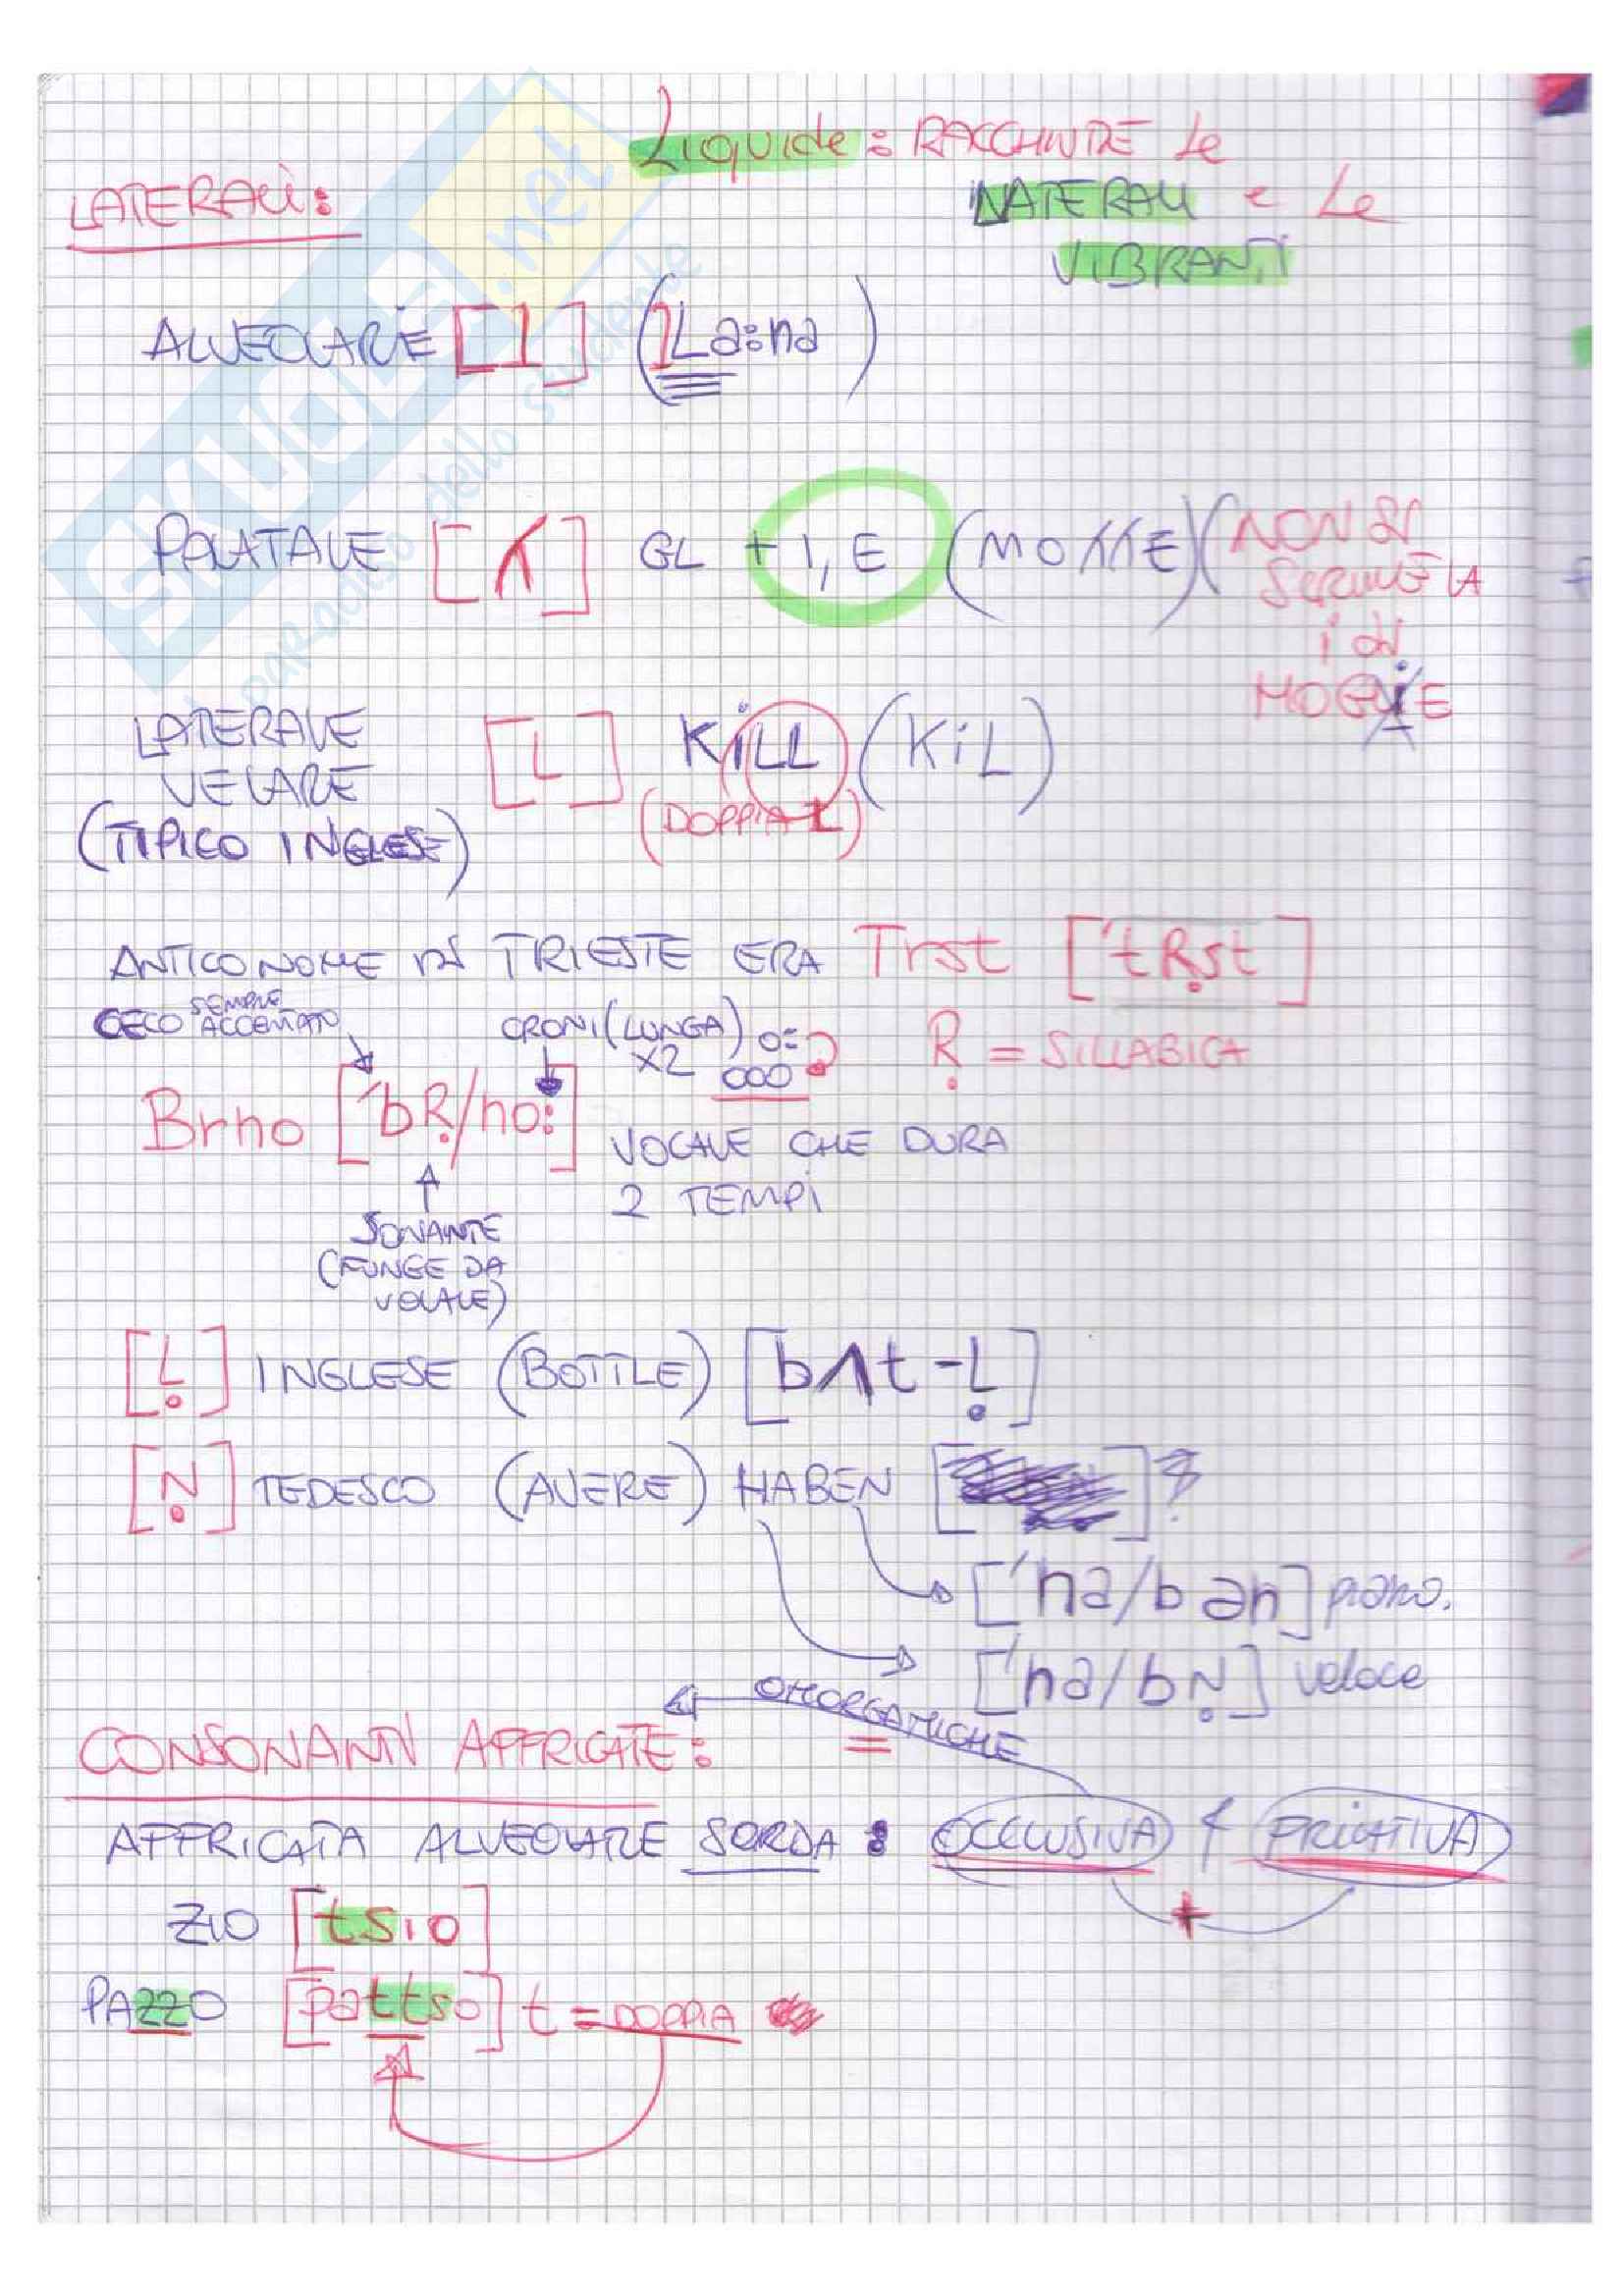 Liquide: RACCHIUDE Le
LATERALI e Le
VIBRANTI
LATERALI:
ALVEOLARE [l] (La:na)
PALATALE [ʎ] GL + I, E (MOʎʎE) (NON SI
SCRIVE LA
i di
MOGLiE
LATERALE
VELARE
(TIPICO INGLESE)
[L] KiLL (KiL)
(DOPPIA L)
ANTICO NOME DI TRIESTE ERA Trst ['tṚst]
CECO SEMPRE ACCENTATO
CRONI (LUNGA) o:
X2 ooo
Ṛ = SILLABICA
Brno ['bṚ/no:]
VOCALE CHE DURA
2 TEMPI
SONANTE
(FUNGE DA
VOCALE)
[Ḷ] INGLESE (BOTTLE) [bʌt-Ḷ]
[Ṇ] TEDESCO (AVERE) HABEN [ ]?
['ha/bən] piano.
['ha/bṆ] veloce
OMORGANICHE
CONSONANTI AFFRICATE: =
AFFRICATA ALVEOLARE SORDA: OCCLUSIVA e FRICATIVA
+
ZIO [tsio]
PAZZO [pattso] t = DOPPIA
SKUOLA.net
il paradiso dello studente